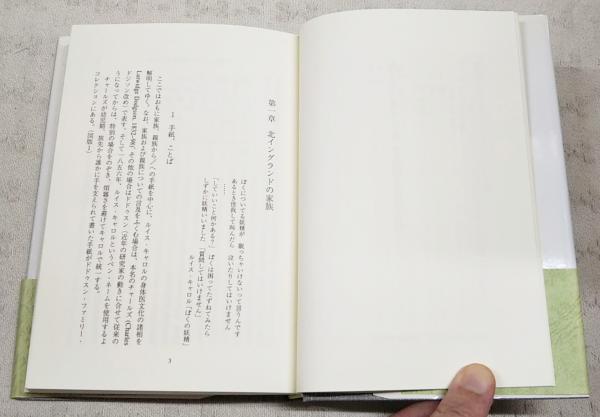 第一章 北イングランドの家族
ぼくについてる妖精が 眠っちゃいけないって言うんです
あるとき怪我して叫んだら 泣いたりしてはいけません
……
「していいこと何かある？」 ぼくは困ってたずねてみたら
しずかに妖精いいました「質問してはいけません」
ルイス・キャロル「ぼくの妖精」
1 手紙、ことば
ここではおもに家族、親族から／への手紙を中心に、ルイス・キャロルの身体医文化の諸相を
解明してゆく。なお、家族および親族についての言及をふくむ場合は、本名のチャールズ（Charles
Lutwidge Dodgson, 1832-98）、その他の場合はドドゥスン（近年の研究家の動きに合せて従来の
ドジソン改め）で表す。そして一八五六年、ルイス・キャロルというペン・ネームを使用するよ
うになってからは、特別の場合をのぞき、煩雑さを避けてキャロルで統一する。
チャールズが幼児期、旅先から誰かに手を支えられて書いた手紙がドドゥスン・ファミリー・
コレクションにある。（図版1）
3